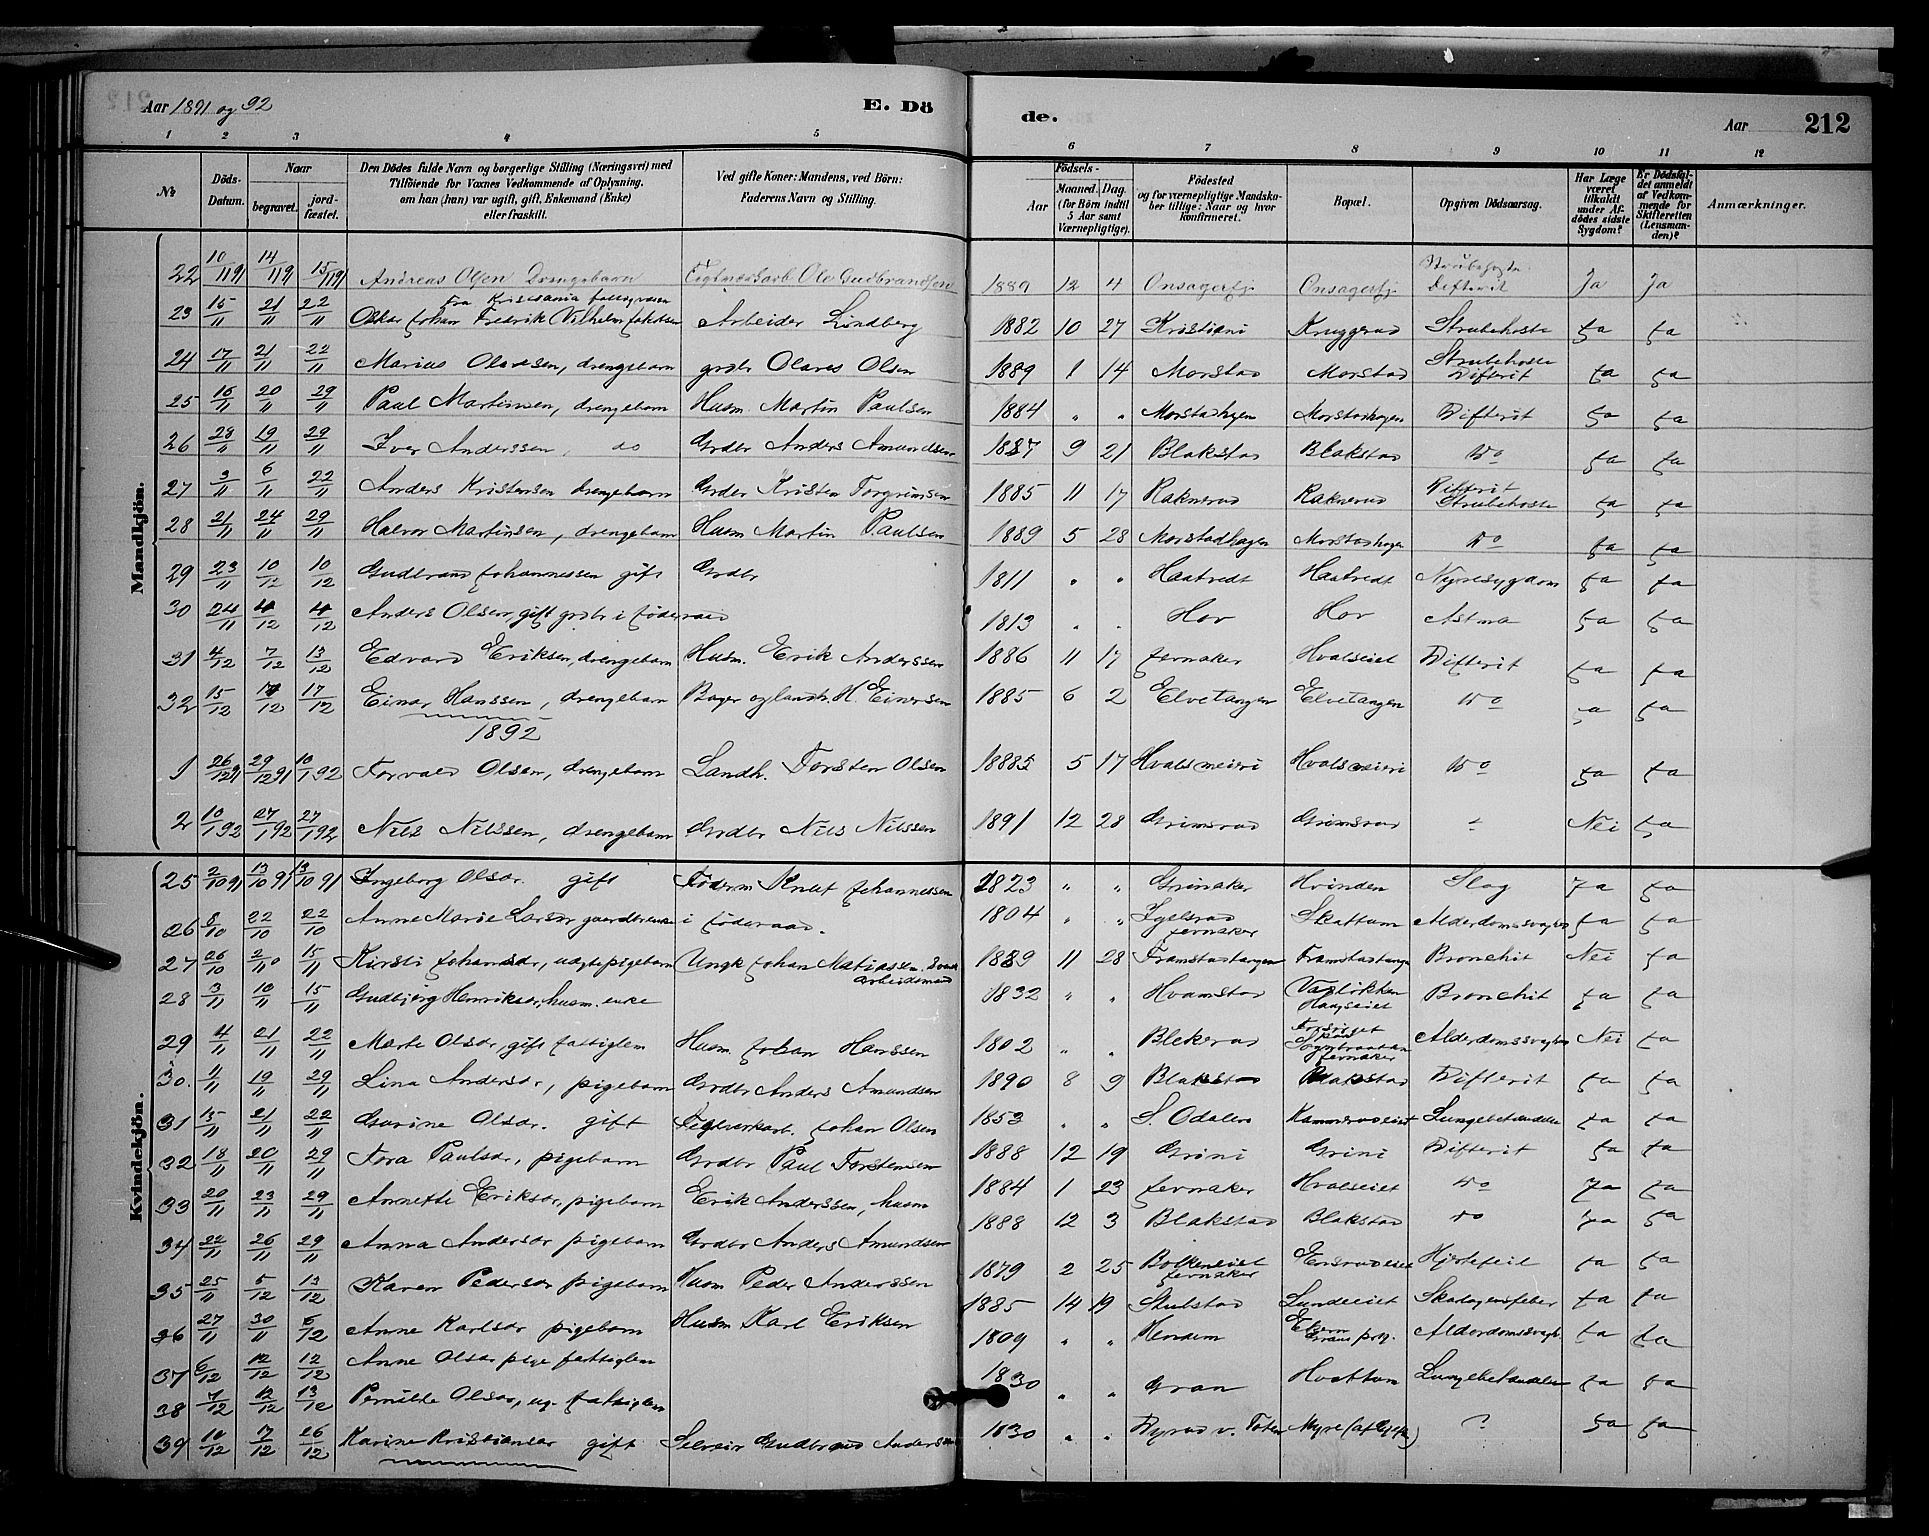 Aar 1891 og 92
E. Dö
de.
Aar
212
1 2 3 4 5 6 7 8 9 10 11 12
№
Döds-Datum.
Naar begravet. jordfæstet.
Den Dödes fulde Navn og borgerlige Stilling (Næringsvei) med Tilföiende for Voxnes Vedkommende af Oplysning, om han (hun) var ugift, gift, Enkemand (Enke) eller fraskilt.
Ved gifte Koner: Mandens, ved Börn: Faderens Navn og Stilling.
Födsels-
Aar Maaned. Dag. (for Börn indtil 5 Aar samt Værnepligtige).
Födested og for værnepligtige Mandskaber tillige: Naar og hvor konfirmeret.
Bopæl.
Opgiven Dödsaarsag.
Har Læge været tilkaldt under Afdödes sidste Sygdom?
Er Dödsfaldet anmeldt af Vedkommende for Skifteretten (Lensmanden)?
Anmærkninger.
Mandkjön.
22 10/11 91 14/11 91 15/11 91 Andreas Olsen Drengebarn Teglværksarb. Ole Gudbrandsen 1889 12 4 Onsagerej Onsagerej Strubehoste Difterit Ja Ja
fra Kristiania fattigvæsen
23 15/11 21/11 22/11 Oskar Johan Fredrik Vilhelm Arbeider Lindberg 1882 10 27 Kristiani Kruggerud Strubehoste Ja Ja
24 17/11 21/11 22/11 Marius Olavesen, drengebarn grdbr Olaves Olsen 1889 1 14 Morstad Morstad Strubehoste Difterit Ja Ja
25 16/11 20/11 29/11 Paul Martinsen, drengebarn Husm Martin Paulsen 1884 " " Morstadhagen Morstadhagen Difterit Ja Ja
26 28/11 19/11 29/11 Iver Anderssen, do Grdbr Anders Amundsen 1887 9 21 Blakstad Blakstad Do Ja Ja
27 3/11 6/11 22/11 Anders Kristensen drengebarn Grdbr Kristen Torgrimsen 1885 11 17 Raknerud Raknerud Difterit Strubehoste Ja Ja
28 21/11 24/11 29/11 Halvor Martinsen, drengebarn Husm Martin Paulsen 1889 5 28 Morstadhagen Morstadhagen Do Ja Ja
29 23/11 10/12 10/12 Gudbrand Johannessen gift Grdbr 1811 " " Haatvedt Haatvedt Nyresygdom Ja Ja
30 24/11 4/12 4/12 Anders Olsen, gift grdbr i föderaad 1813 " " Hov Hov Astma Ja Ja
31 4/12 7/12 13/12 Edvard Eriksen, drengebarn Husm. Erik Anderssen 1886 11 17 Jevnaker Hvalseiet Difterit Ja Ja
32 15/12 17/12 17/12 Einar Hanssen, drengebarn Bager og landh. H. Einersen 1885 6 2 Elvetangen Elvetangen Do Ja Ja
1892
1 26/12 91 29/12 91 10/1 92 Torvald Olsen, drengebarn Landh. Torsten Olsen 18885 5 17 Hvalsmeieri Hvalsmeieri Do Ja Ja
2 10/1 92 27/1 92 27/1 92 Nils Nilssen, drengebarn Grdbr Nils Nilssen 1891 12 28 Grimsrud Grimsrud Nei Ja
Kvindekjön.
25 2/10 91 13/10 91 13/10 91 Ingeborg Olsdr. gift Föderm Knut Johannessen 1823 " " Grinaker Hvinden Slag Ja Ja
26 8/10 22/10 22/10 Anne Marie Larsdr gaardbr enke i föderaad. 1804 " " Jevnaker Skattum Alderdomssvaghed Ja Ja
27 26/10 2/11 15/11 Kirsti Johansdr, uægte pigebarn Ungk Johan Matiassen arbeidsmand 1889 11 28 Framstadtangen Framstadtangen Bronchit Nei Ja
28 3/11 10/11 15/11 Gudbjörg Henriksdr, husm. enke 1832 " " Hvamstad Haugseiet Bronchit Ja Ja
29 4/11 21/11 22/11 Marte Olsdr, gift fattiglem Husm Johan Hanssen 1802 " " Blekerud Jevnaker Alderdomssvaghed Nei Ja
30. 11/11 19/11 29/11 Lina Andersdr, pigebarn Grdbr Anders Amundsen 1890 8 9 Blakstad Blakstad Difterit Ja Ja
31 15/11 21/11 22/11 Gurine Olsdr. gift Teglverkarb. Johan Olsen 1853 " " S. Odalen Lungebetændelse Ja Ja
32 18/11 20/11 29/11 Tora Paulsdr, pigebarn Grdbr Paul Torstensen 1888 12 19 Grini Grini Difterit Ja Ja
33 20/11 23/11 29/11 Annette Eriksdr, pigebarn Erik Anderssen, husm 1884 1 23 Jevnaker Hvalseiet Do Ja Ja
34 22/11 26/11 29/11 Anna Andersdr pigebarn Grdbr Anders Amundsen 1888 12 3 Blakstad Blakstad Do Ja Ja
35 25/11 5/12 13/12 Karen Pedersdr pigebarn Husm Peder Anderssen 1879 2 25 Bolkeneiet Jevnaker Hjertefeil Ja Ja
36 27/11 30/11 6/12 Anne Karlsdr pigebarn Husm Karl Eriksen 1885 14 19 Stubstad Lundeeiet Skarlagensfeber Ja Ja
37 6/12 12/12 12/12 Anne Olsdr pige fattiglem 1809 " " Hendem Alderdomssvagh. Ja Ja
38 7/12 12/12 13/12 Pernille Olsdr, ug. fattiglem 1830 " " Gran Hvattum Lungebetændelse Ja Ja
39 10/12 17/12 26/12 Karine Kristiansdr gift Selveier Gudbrand Anderssen 1830 " " Dyrud v. Toten Myre ? Ja Ja